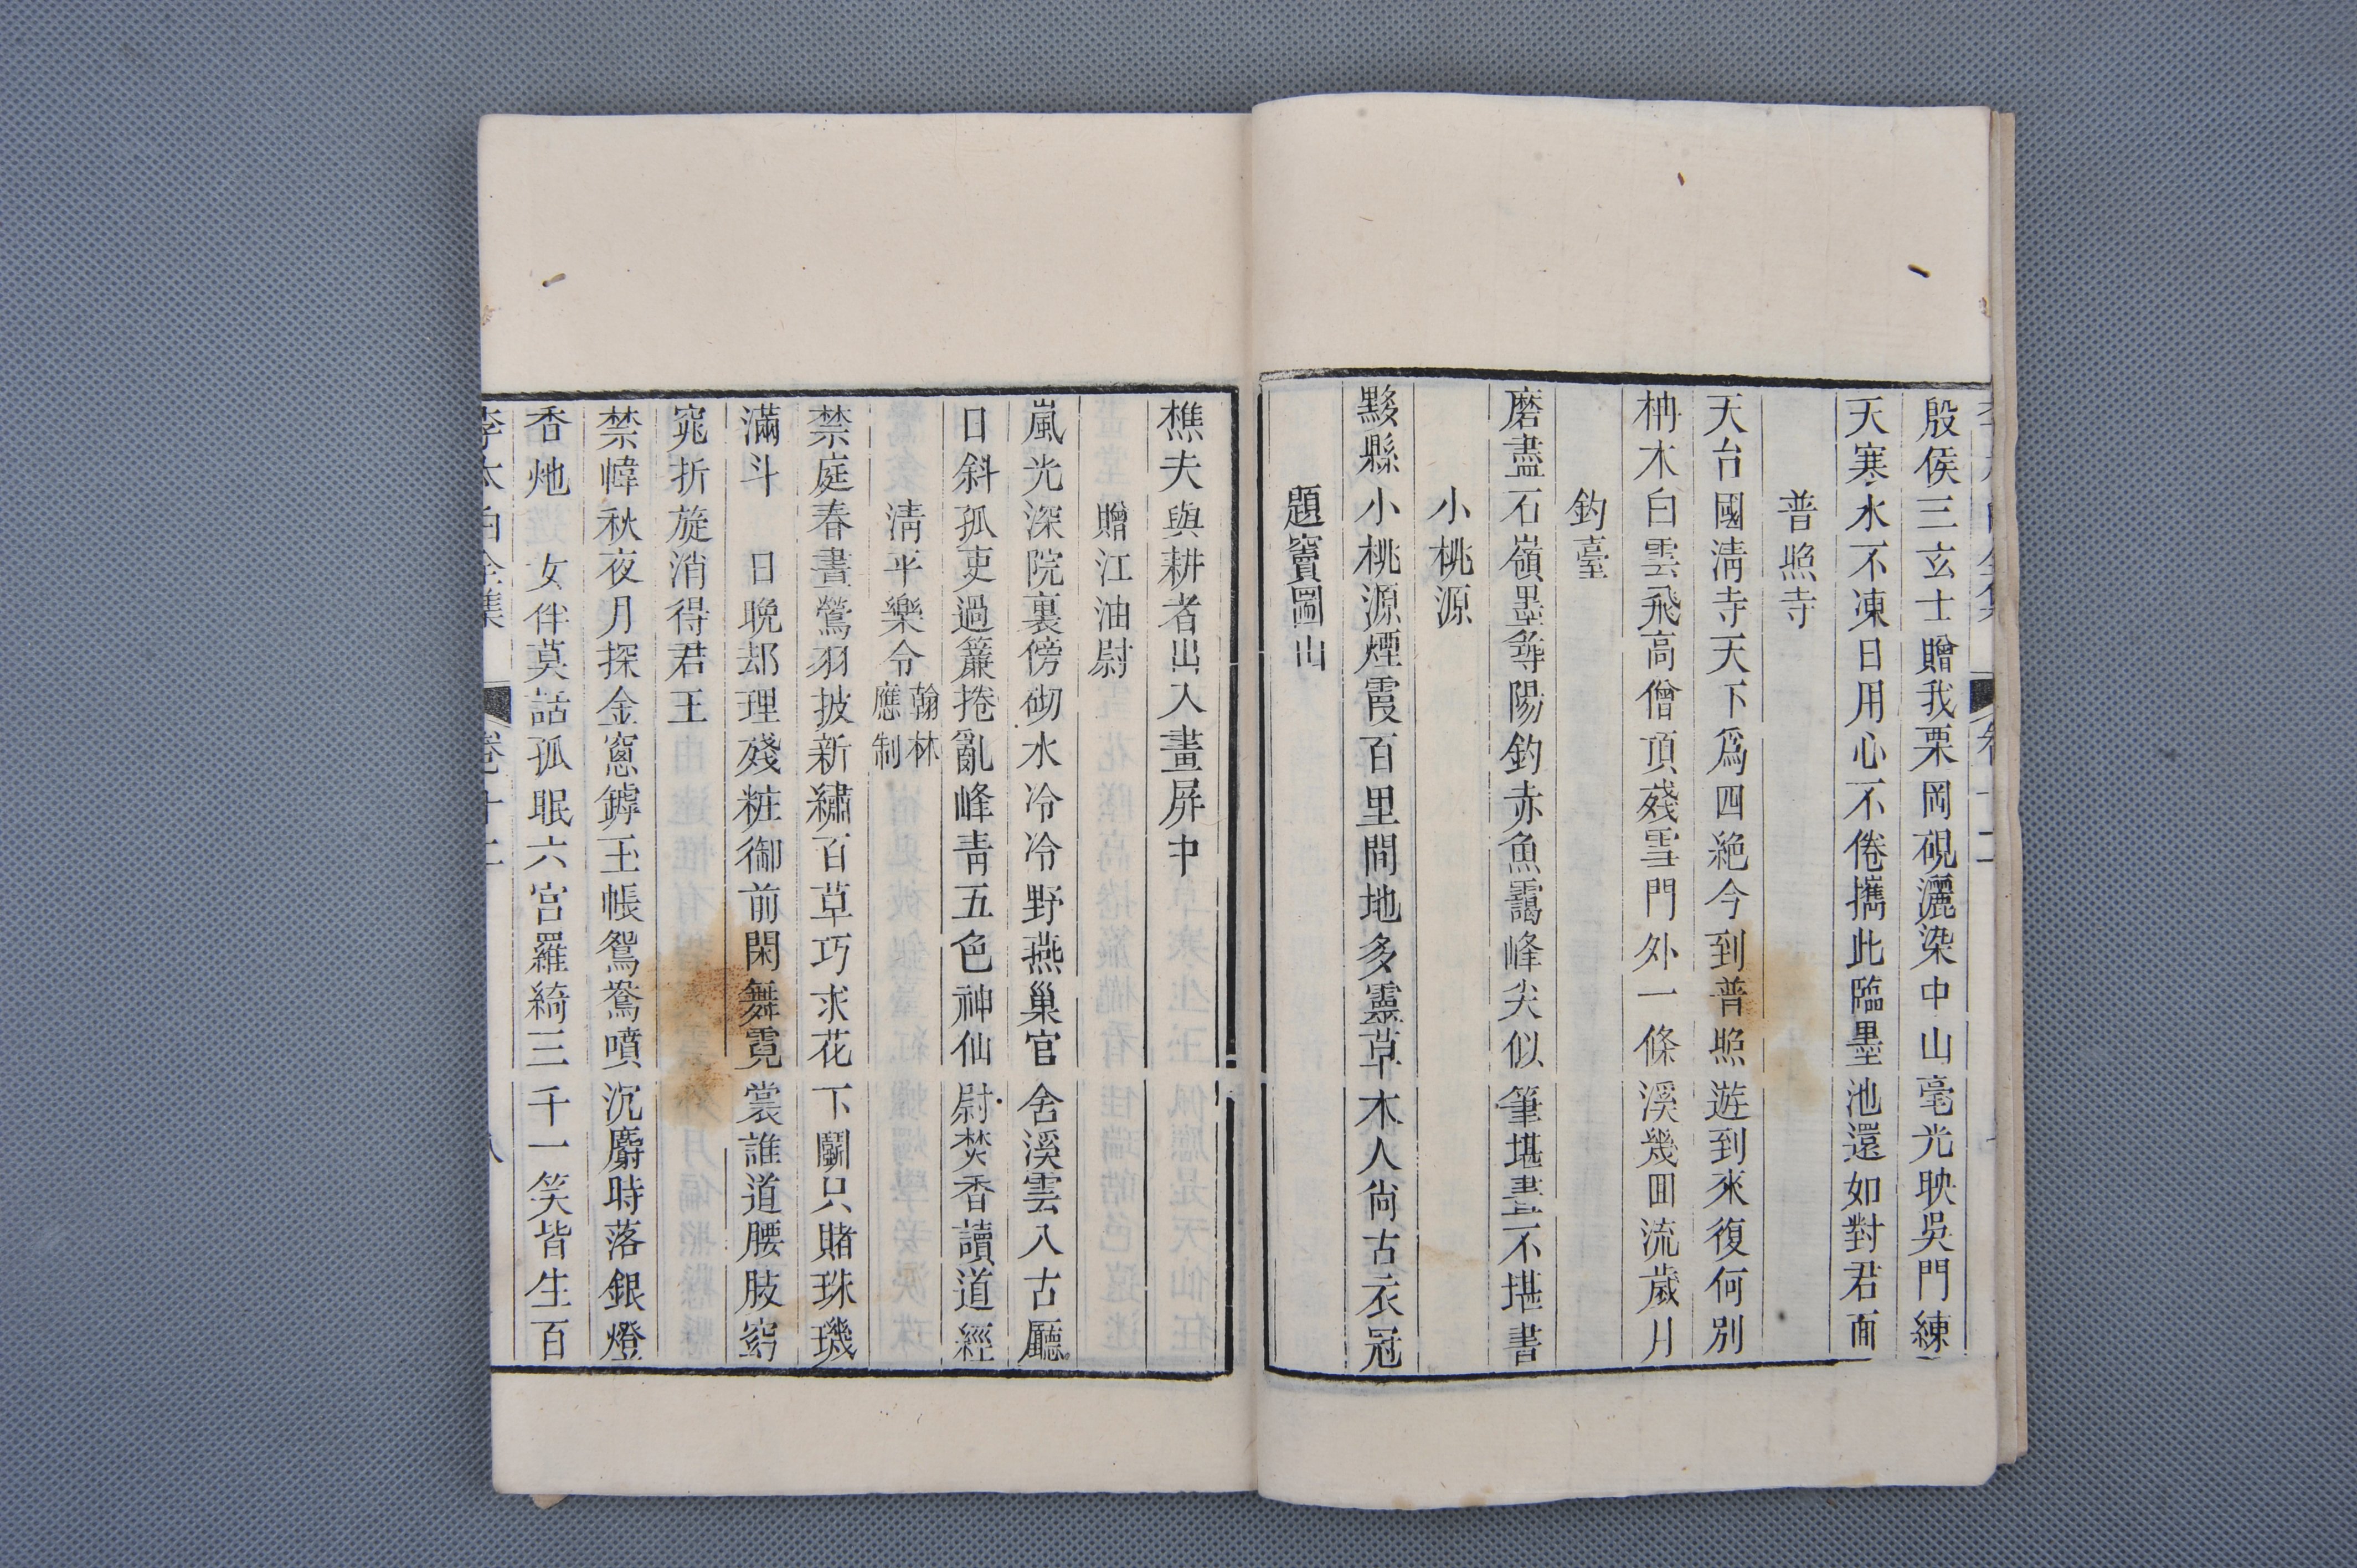 殷侯三玄士贈我栗岡硯灑染中山毫光映吳門練
天寒水不凍日用心不倦攜此臨墨池還如對君面
普照寺
天台國淸寺天下爲四絶今到普照遊到來復何別
枏木白雲飛高僧頂殘雪門外一條溪幾囬流歲月
釣臺
磨盡石嶺墨尋陽釣赤魚靄峰尖似筆堪畫不堪書
小桃源
黟縣小桃源煙霞百里間地多靈草木人尙古衣冠
題竇圌山
樵夫與耕者出入畫屏中
贈江油尉
嵐光深院裏傍砌水冷冷野燕巢官舍溪雲入古廳
日斜孤吏過簾捲亂峰靑五色神仙尉焚香讀道經
淸平樂令翰林
應制
禁庭春晝鶯羽披新繡百草巧求花下鬭只賭珠璣
滿斗　日晚却理殘粧御前閑舞霓裳誰道腰肢窈
窕折旋消得君王
禁幃秋夜月探金窻罅玉帳鴛鴦噴沉麝時落銀燈
香灺　女伴莫話孤眠六宫羅綺三千一笑皆生百
李太白全集　卷十二　八